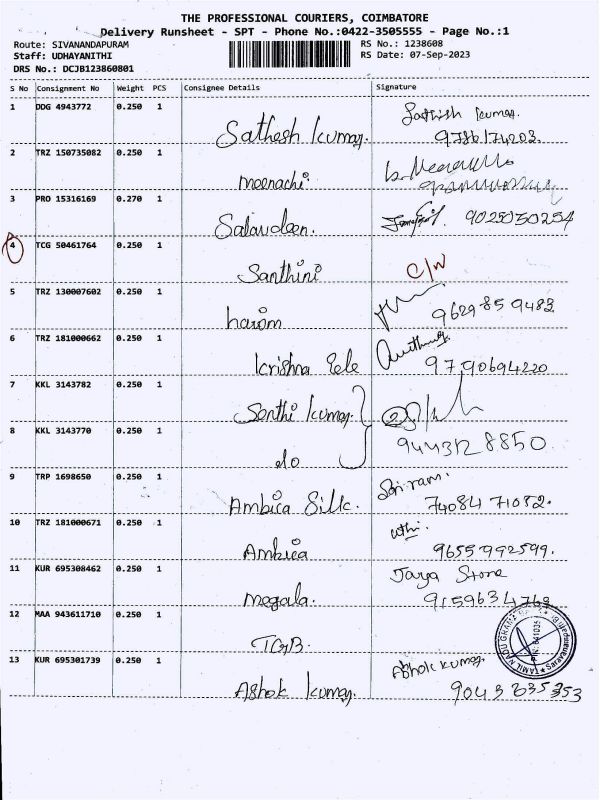 THE PROFESSIONAL COURIERS, COIMBATORE
Delivery Runsheet - SPT - Phone No.:0422-3505555 - Page No.:1
Route: SIVANANDAPURAM
RS No.: 1238608
Staff: UDHAYANITHI
RS Date: 07-Sep-2023
DRS No.: DCJB123860801
S No Consignment No Weight PCS Consignee Details Signature
1 DDG 4943772 0.250 1 Sathesh kumar. Sathish kumar.
9786174203
2 TRZ 150735082 0.250 1 meenachi.
3 PRO 15316169 0.270 1 Salavdeen. 9025030254
4 TCG 50461764 0.250 1 Santhini C/N
5 TRZ 130007602 0.250 1 9629859483
6 TRZ 181000662 0.250 1 krishna
9790694220
7 KKL 3143782 0.250 1 Senthi kumar.
8 KKL 3143770 0.250 1 do 9443128850
9 TRP 1698650 0.250 1 Ambica Silk. Sriram.
7408471082.
10 TRZ 181000671 0.250 1 Ambica
9655992599.
11 KUR 695308462 0.250 1 megala. Jaya Store
9159634768
12 MAA 943611710 0.250 1 TGB.
13 KUR 695301739 0.250 1 Ashok kumar Ashok kumar.
9043835353